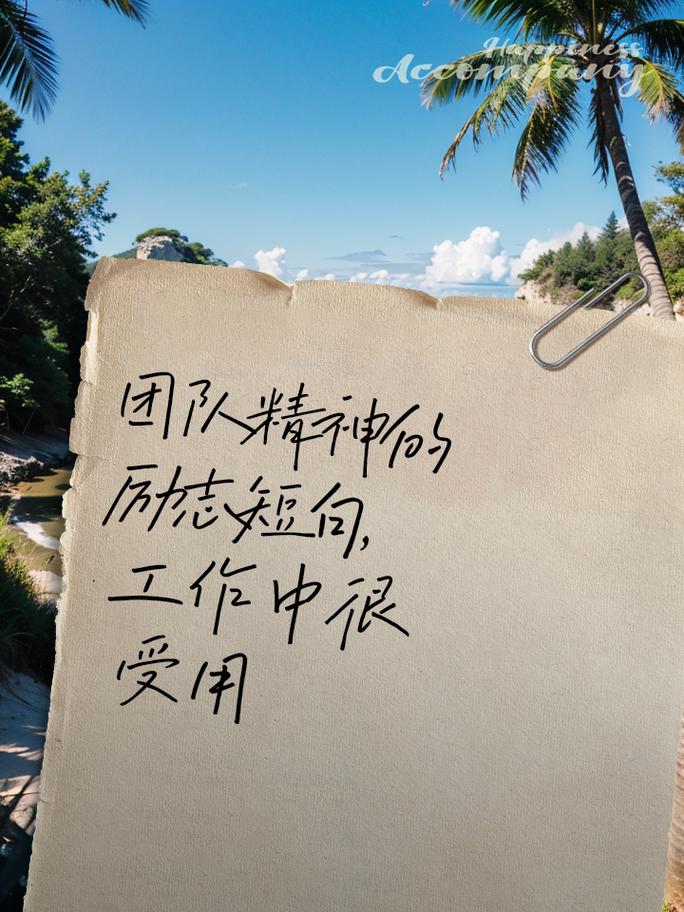 Happiness
Accompany
团队精神的
励志短句,
工作中很
受用